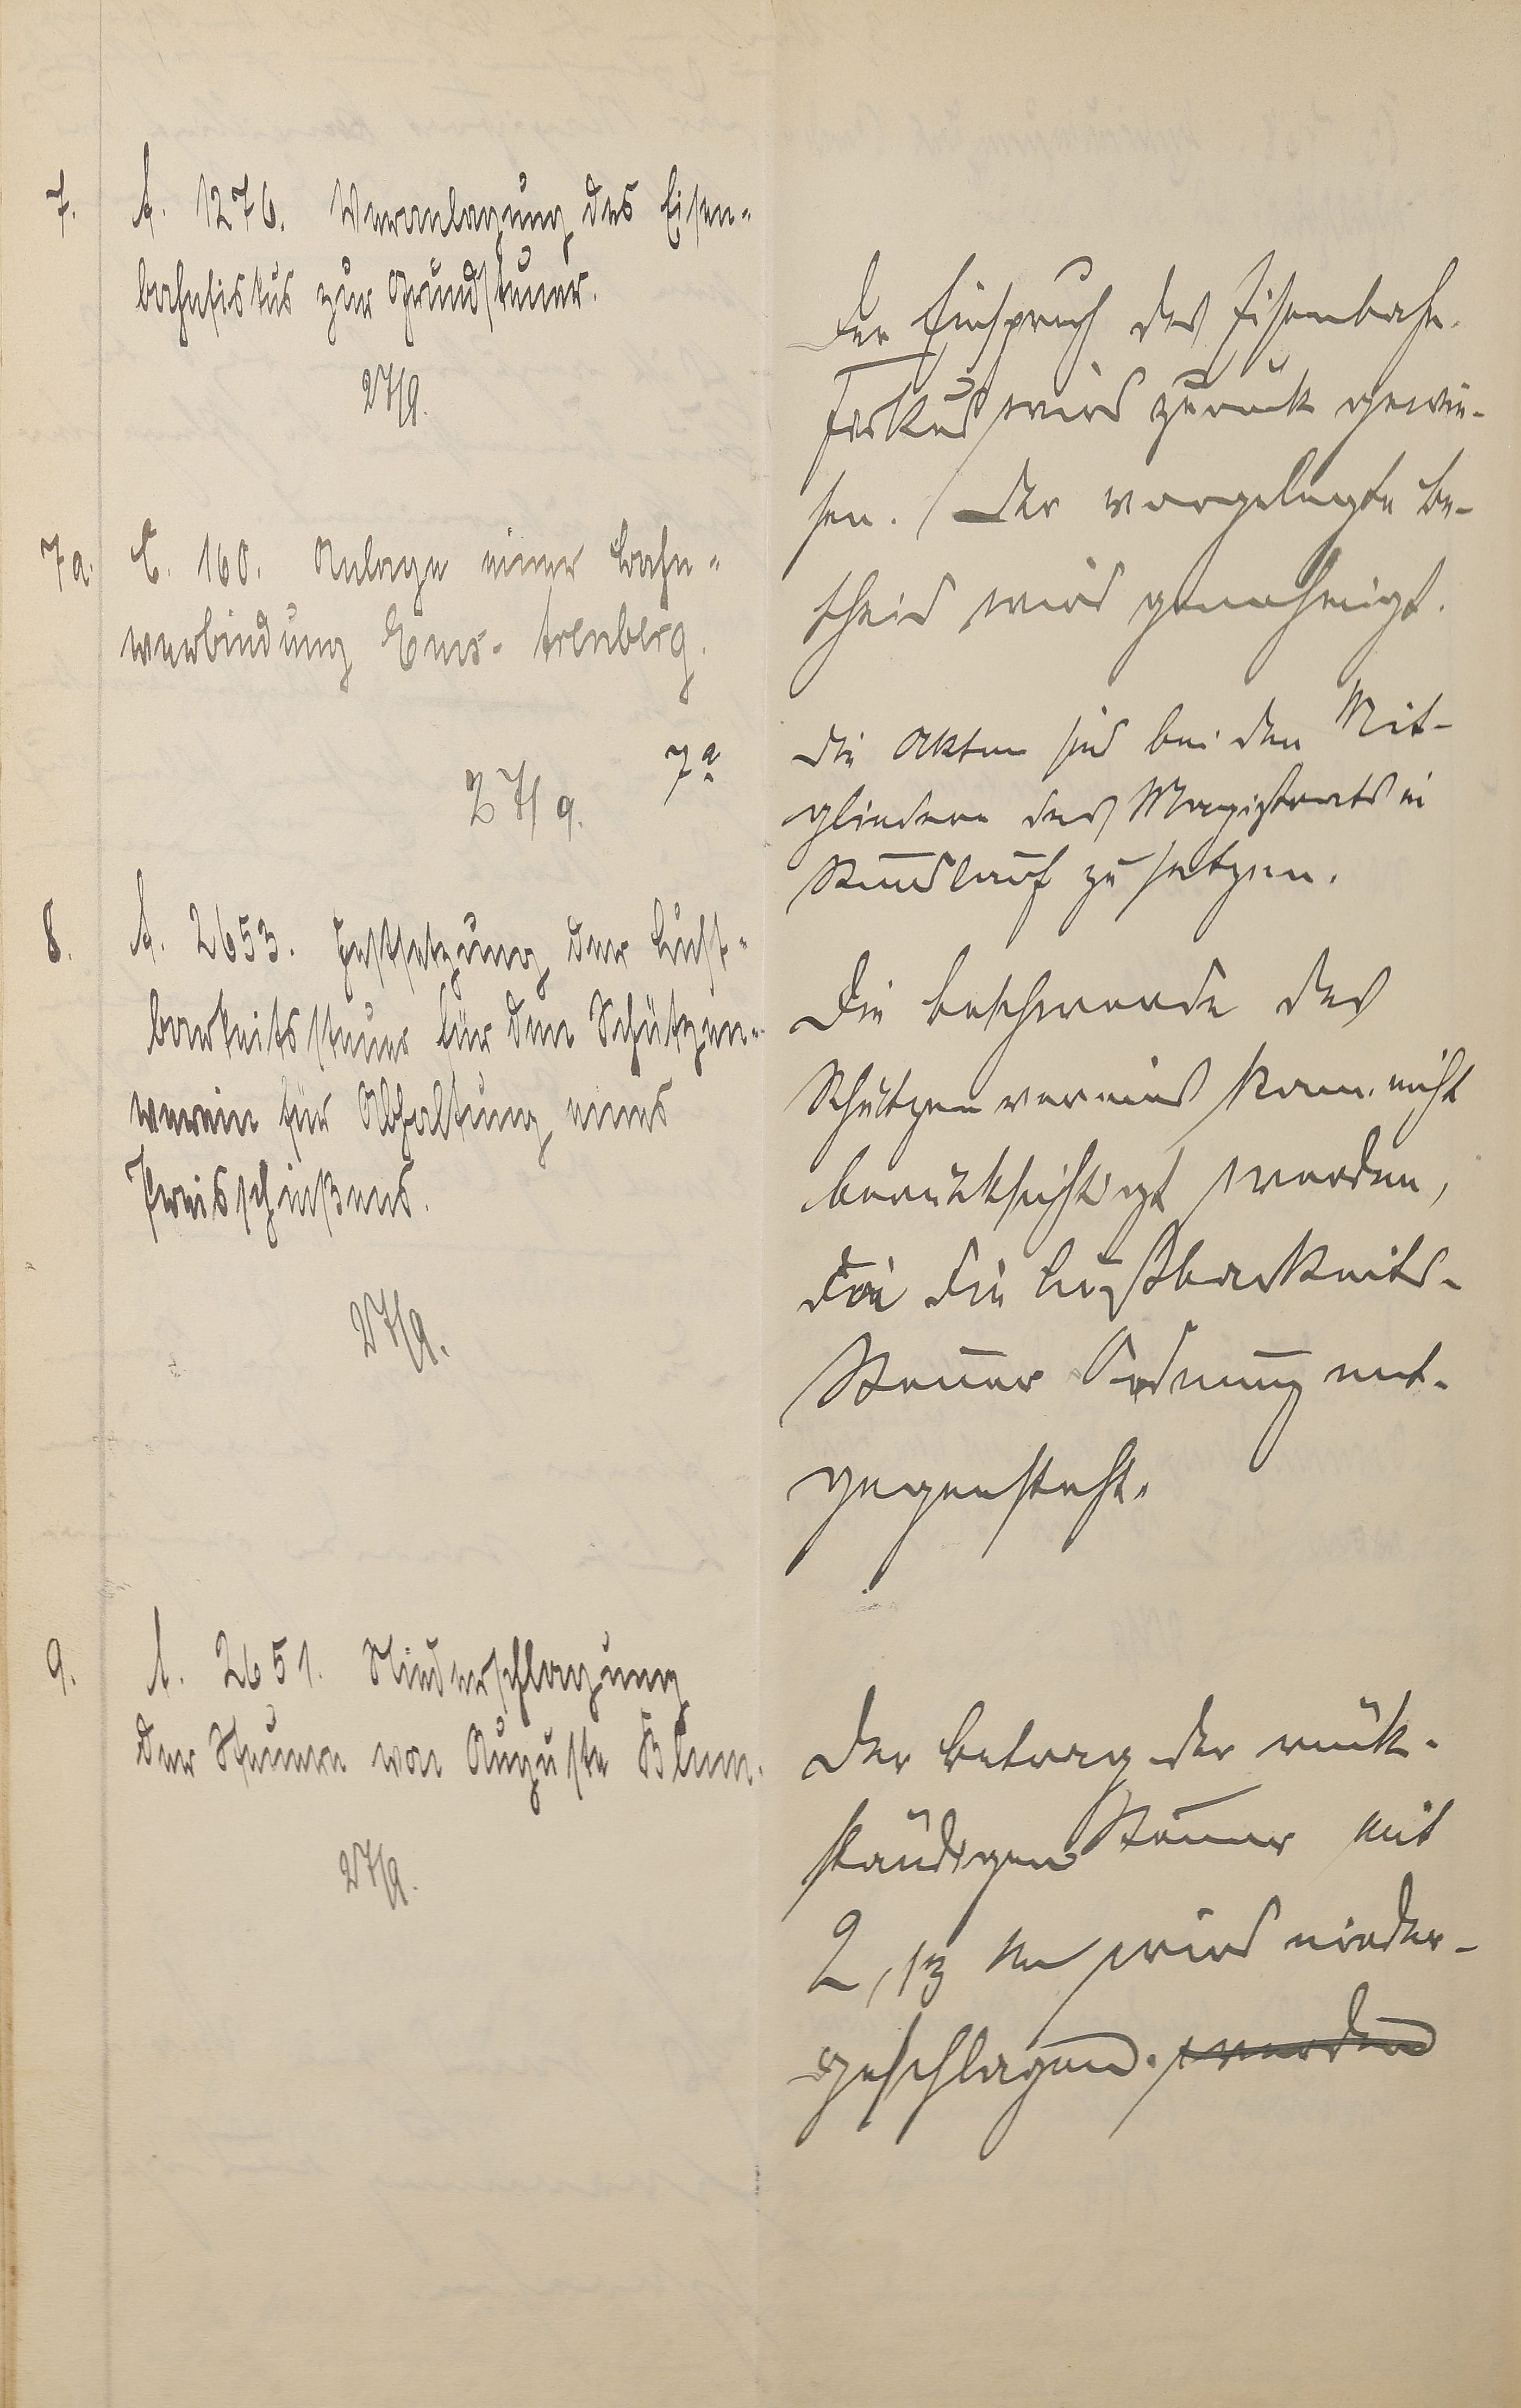 7. A. 1276. Veranlagung des Eisen-
bahnfiskus zur Grundsteuer.
27/9.
Der Einspruch des Eisenbahn-
Fiskus wird zurück gewie-
sen. Der vorgelegte Be-
scheid wird genehmigt.
7a. C. 160. Anlage einer Bahn-
verbindung Ems- Arenberg.
27/9.
7a Die Akten sind bei den Mit-
gliedern des Magistrats in
Rundlauf zu setzen.
8. A. 2653. Festsetzung der Lust-
barkeitssteuer für den Schützen-
verein für Abhaltung eines
Preisschießens.
27/9.
Die Beschwerde des
Schützenvereins kann nicht
berücksichtigt werden,
da die Lustbarkeits-
Steuer Ordnung ent-
gegensteht.
9. A. 2651. Niederschlagung
der Steuern von Auguste Blum.
27/9.
Der Betrag der rück-
ständigen Steuer mit
2,13 M wird nieder-
geschlagen. werden